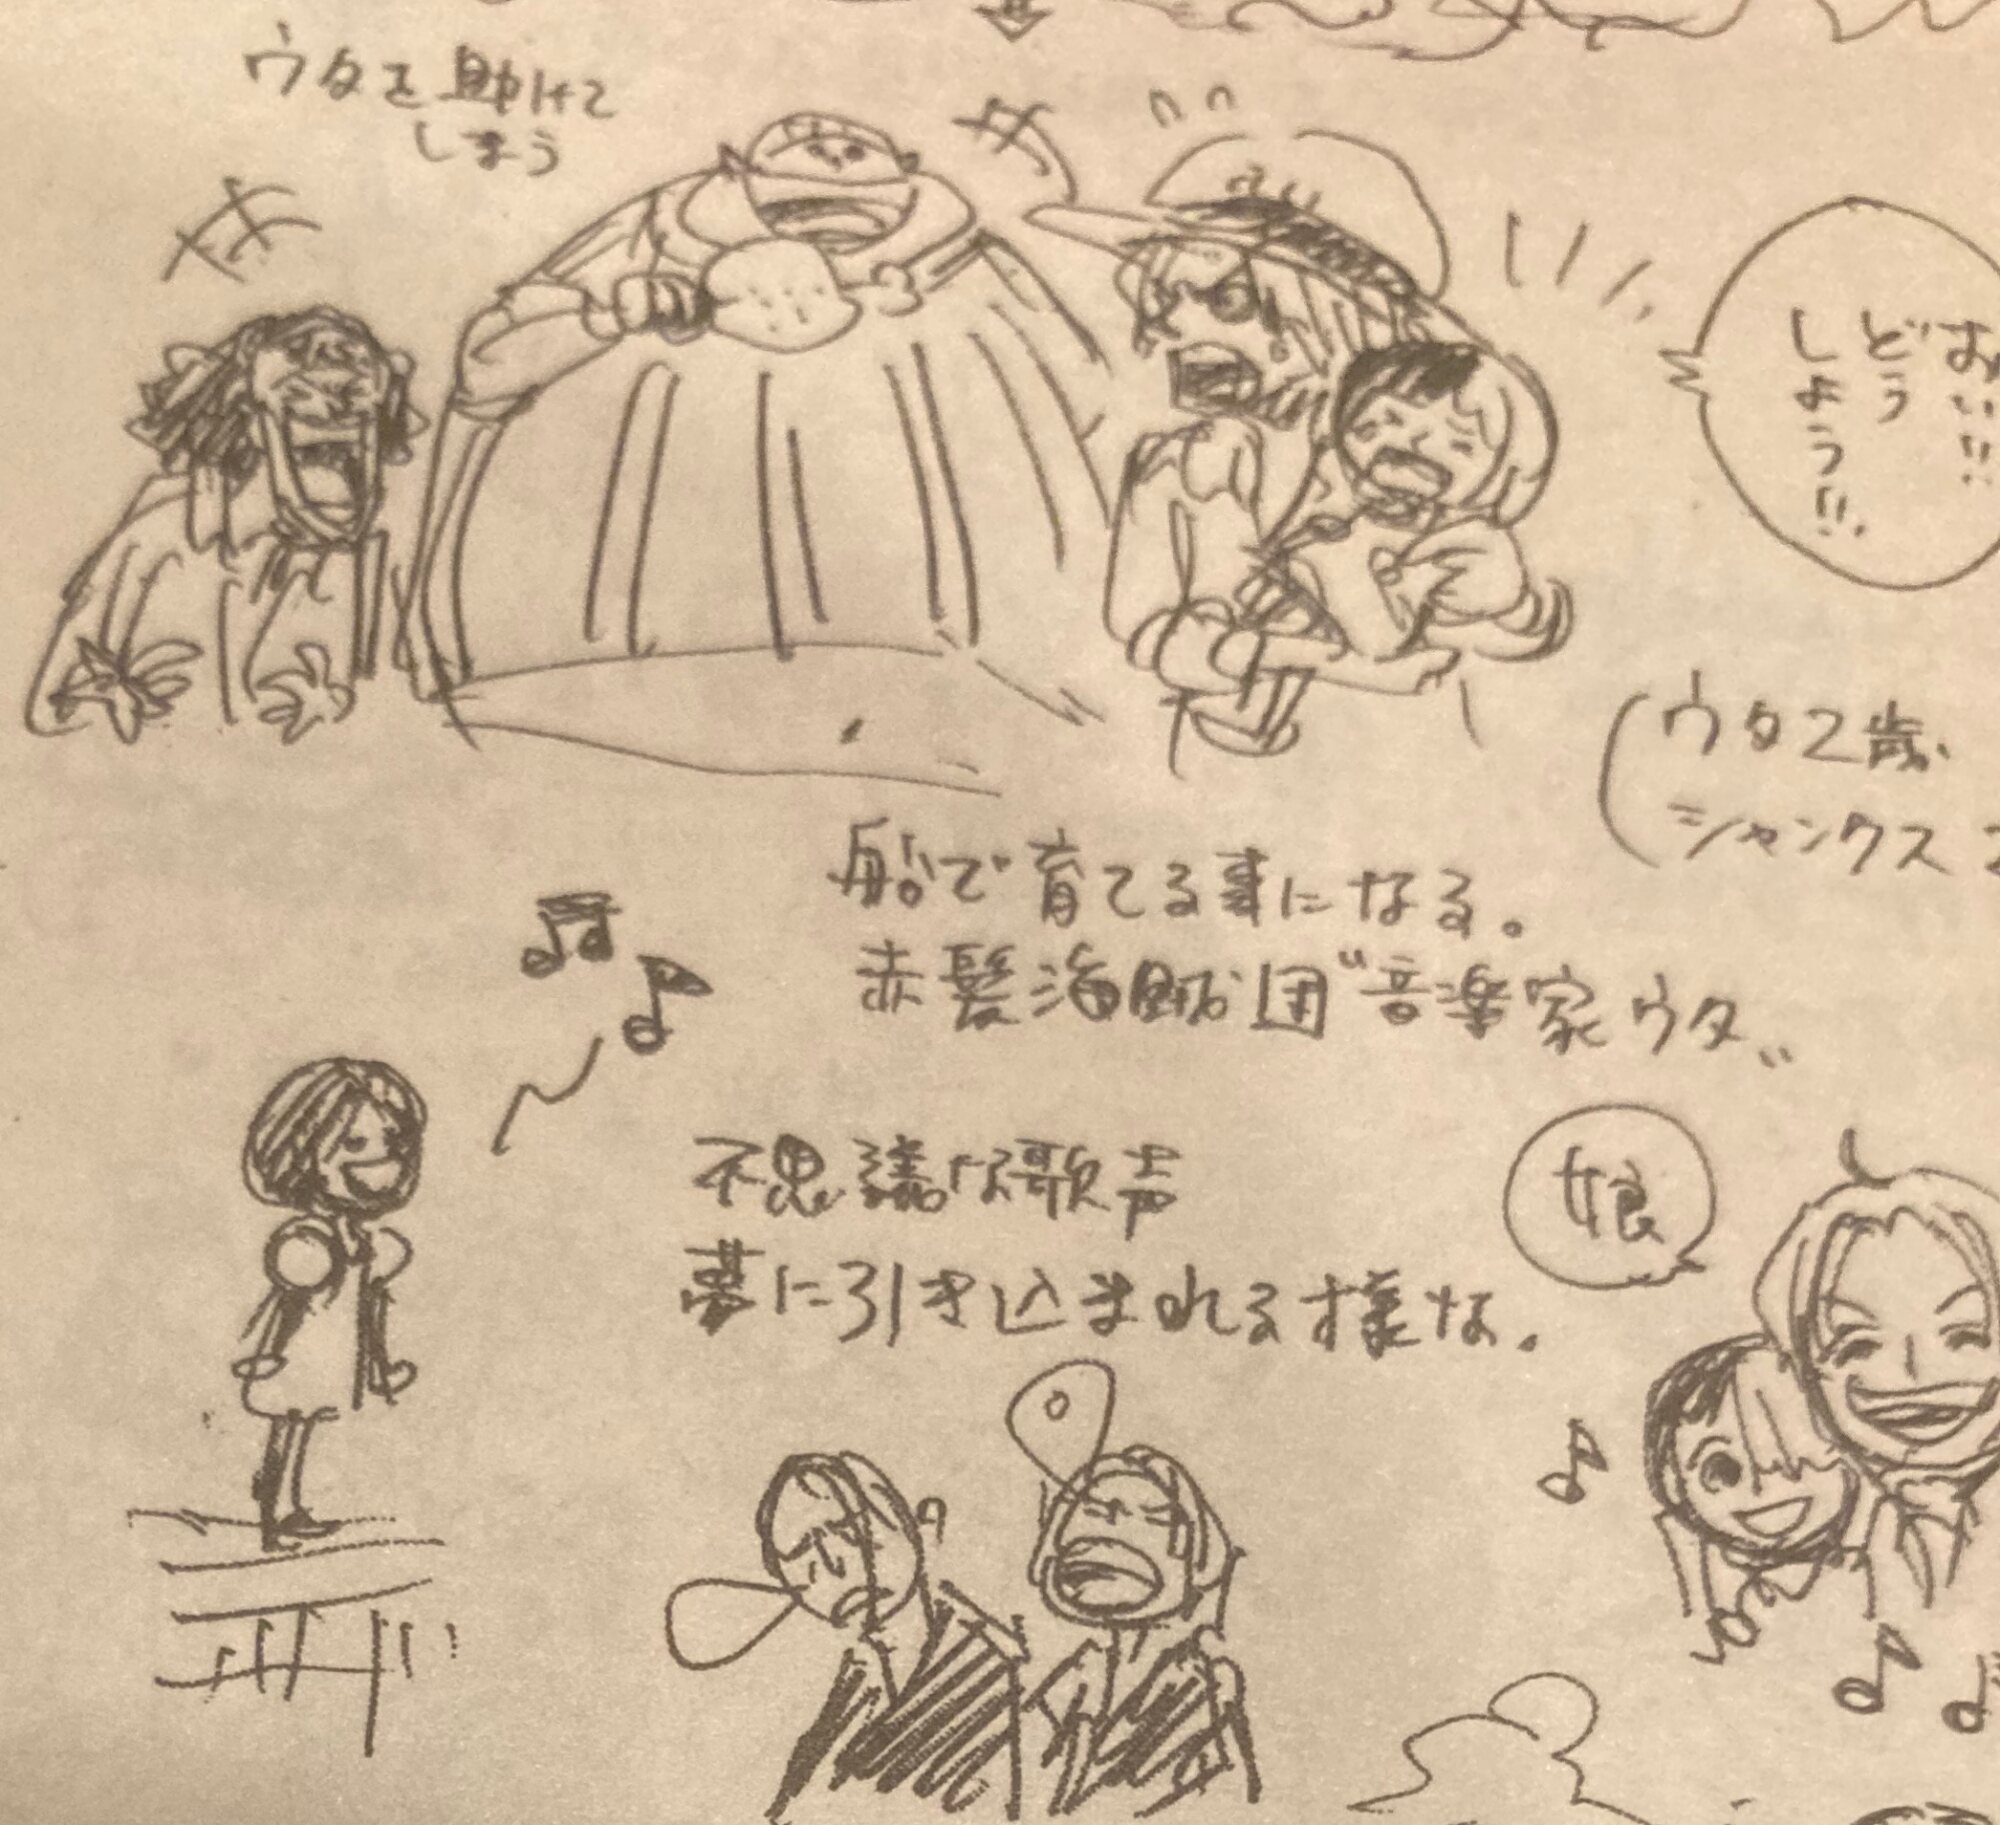 ウタを助けて
しまう
おい!!
どう
しよう!!
(ウタ2歳、
シャンクス
船で育てる事になる。
赤髪海賊団“音楽家ウタ„
不思議な歌声
夢に引き込まれる様な。
娘